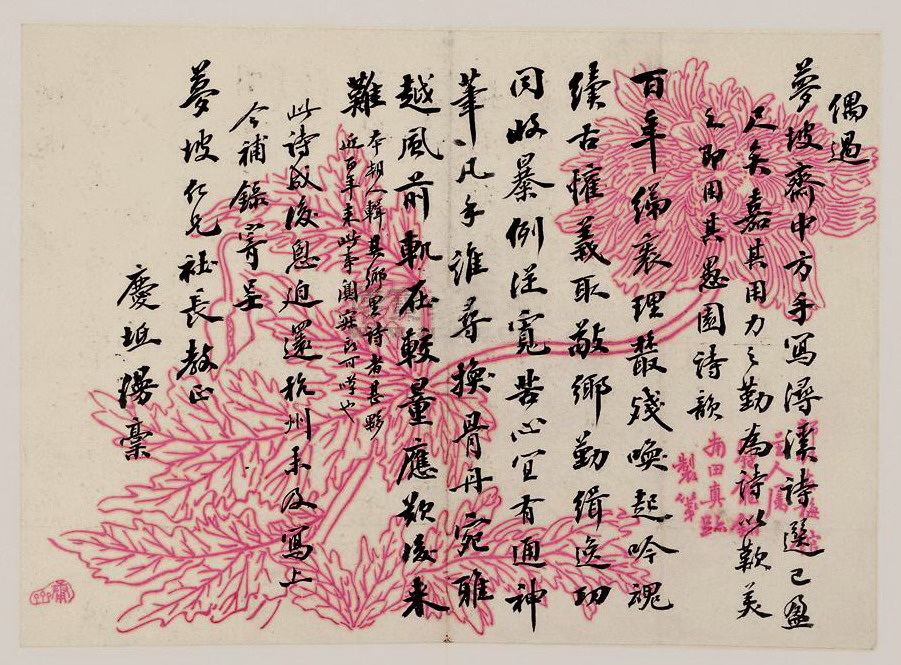 偶過
夢坡齋中方手寫潯溪詩選已盈
尺矣嘉其用力之勤為詩以歎美
之即用其愚園詩韻
百年綈袠理叢殘喚起吟魂
續古懽義取敬鄉勤緝逸功
同收纂例從寬苦心宜有通神
筆凡手誰尋換骨丹宛雅
越風前軌在較量應歎後來
難
本朝人輯其鄉里詩者甚夥
近百年來此事闃寂可嘆也
此詩成後恖迫還杭州未及寫上
今補錄寄呈
夢坡仁兄社長教正
慶坻漫稾